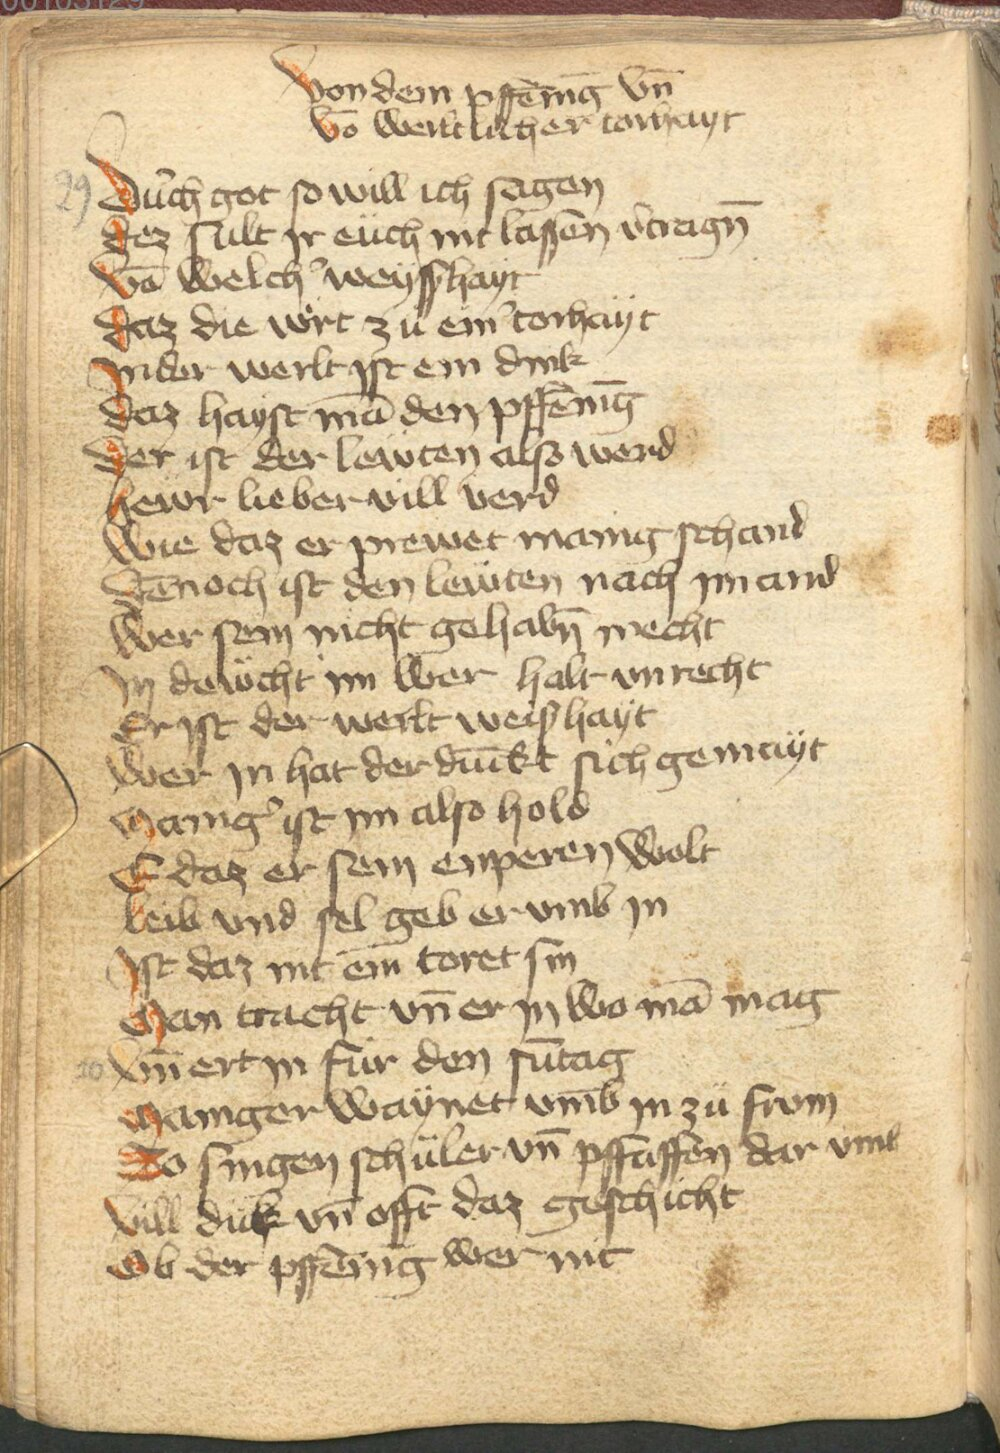 00103129
Von dem pffēnig̅ vn̄
vō werltlicher torhayt
29
Durch got so will ich sagen
dez sult jr eüch nit lassen vtragn̄
Vō welchʼ weyßhayt
daz die wirt zu eimʼ torhayt
Jn der werlt jst ein dink
Daz hayst mā den pffēnig̅
Der ist der lewten also werd
hewr lieber vill verd
Wie daz er prewet manig schand
Dēnoch ist den lewten nach im and
Wer sein nicht gehabn̄ mecht
Jn dewcht im wer halt vnrecht
Er jst der werlt weißhayt
Wer jn hat der dunkt sich gemayt
Manigʼ ist im also hold
E daz er sein enperen wolt
leib vnd sel geb er vmb jn
Jst daz nit ein toret sin
Man tracht vn̄ er jn wo mā mag
20
Vn̄ ert jn für den sūtag
Maniger waynet vmb jn zu frum
So singen schüler vn̄ pffaffen dar vmb
Vill dick vn̄ offt daz geschicht
Ob der pffēnig̅ wer nit